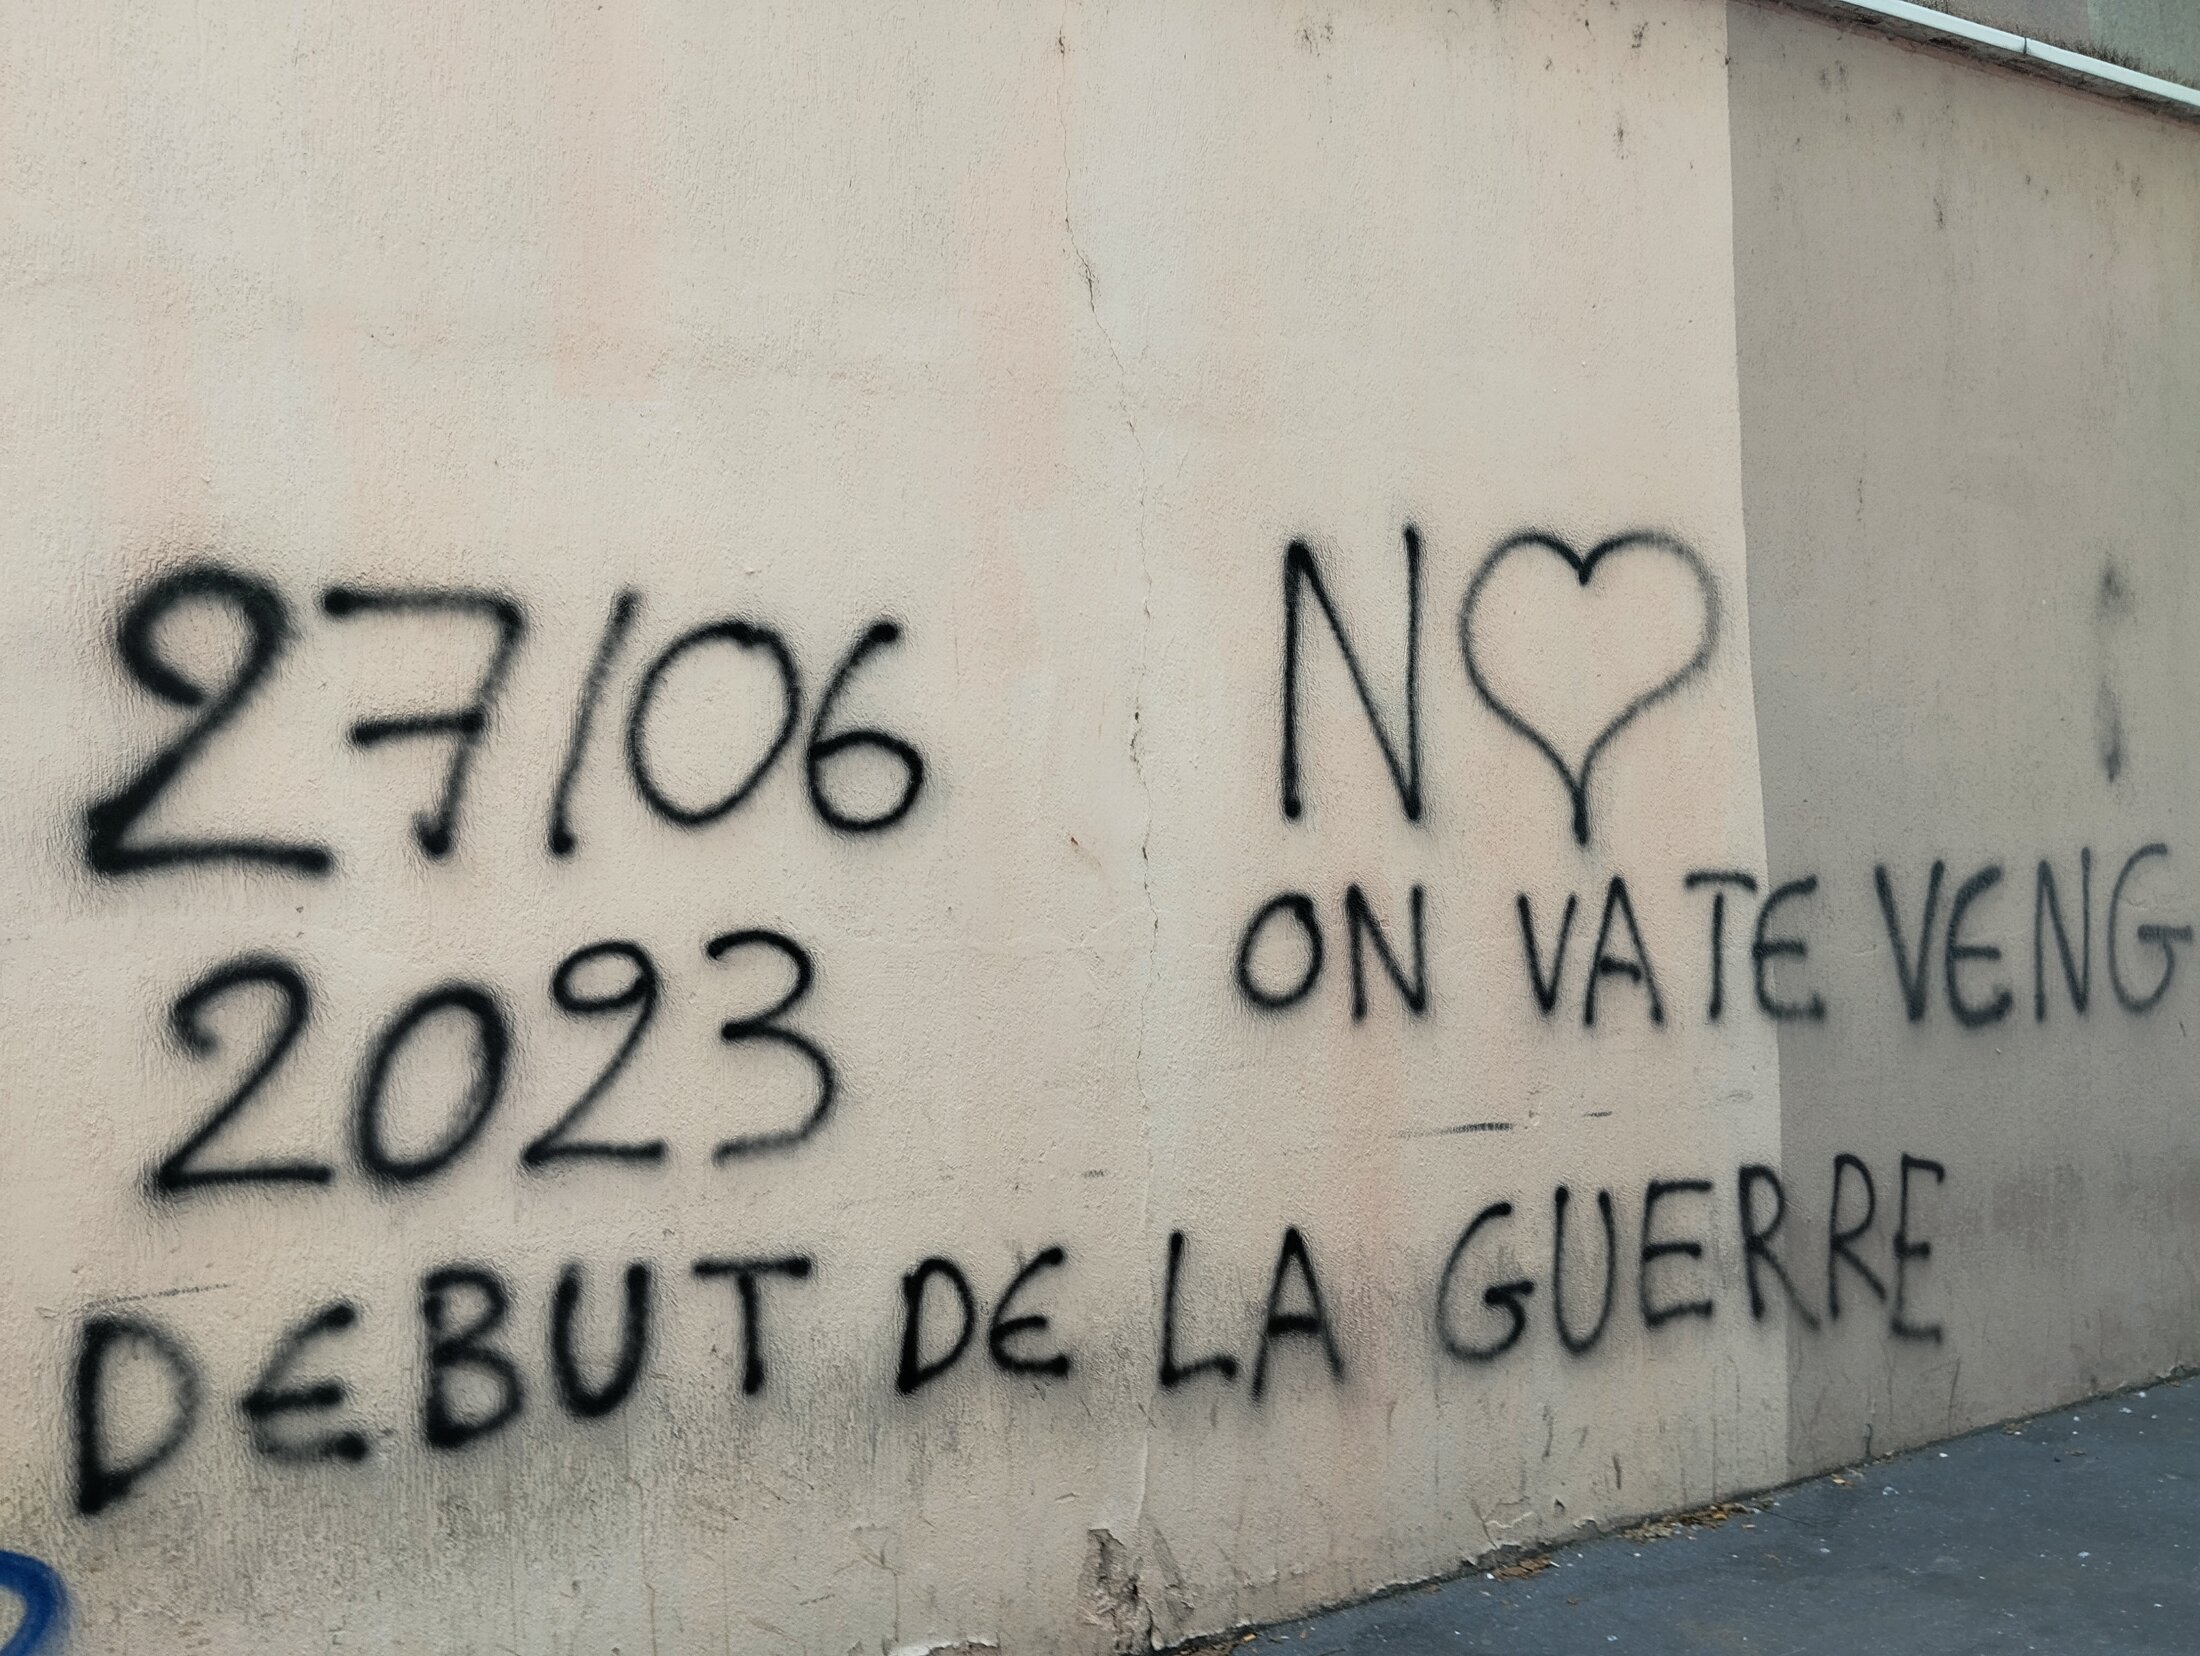 27/06
2023
DEBUT DE LA GUERRE
N♡
ON VA TE VENG